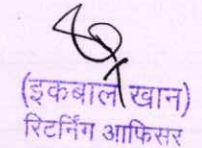 (इकबाल खान)
रिटर्निंग आफिसर